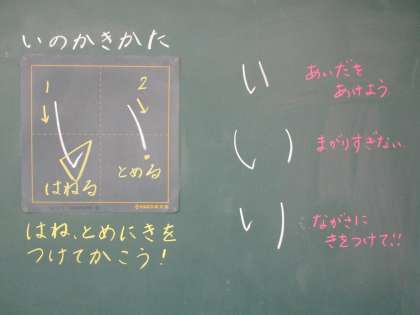 いのかきかた
1
2
はねる
とめる
はね、とめにきを
つけてかこう!
い
あいだを
あけよう
い
まがりすぎない
い
ながさに
きをつけて!!